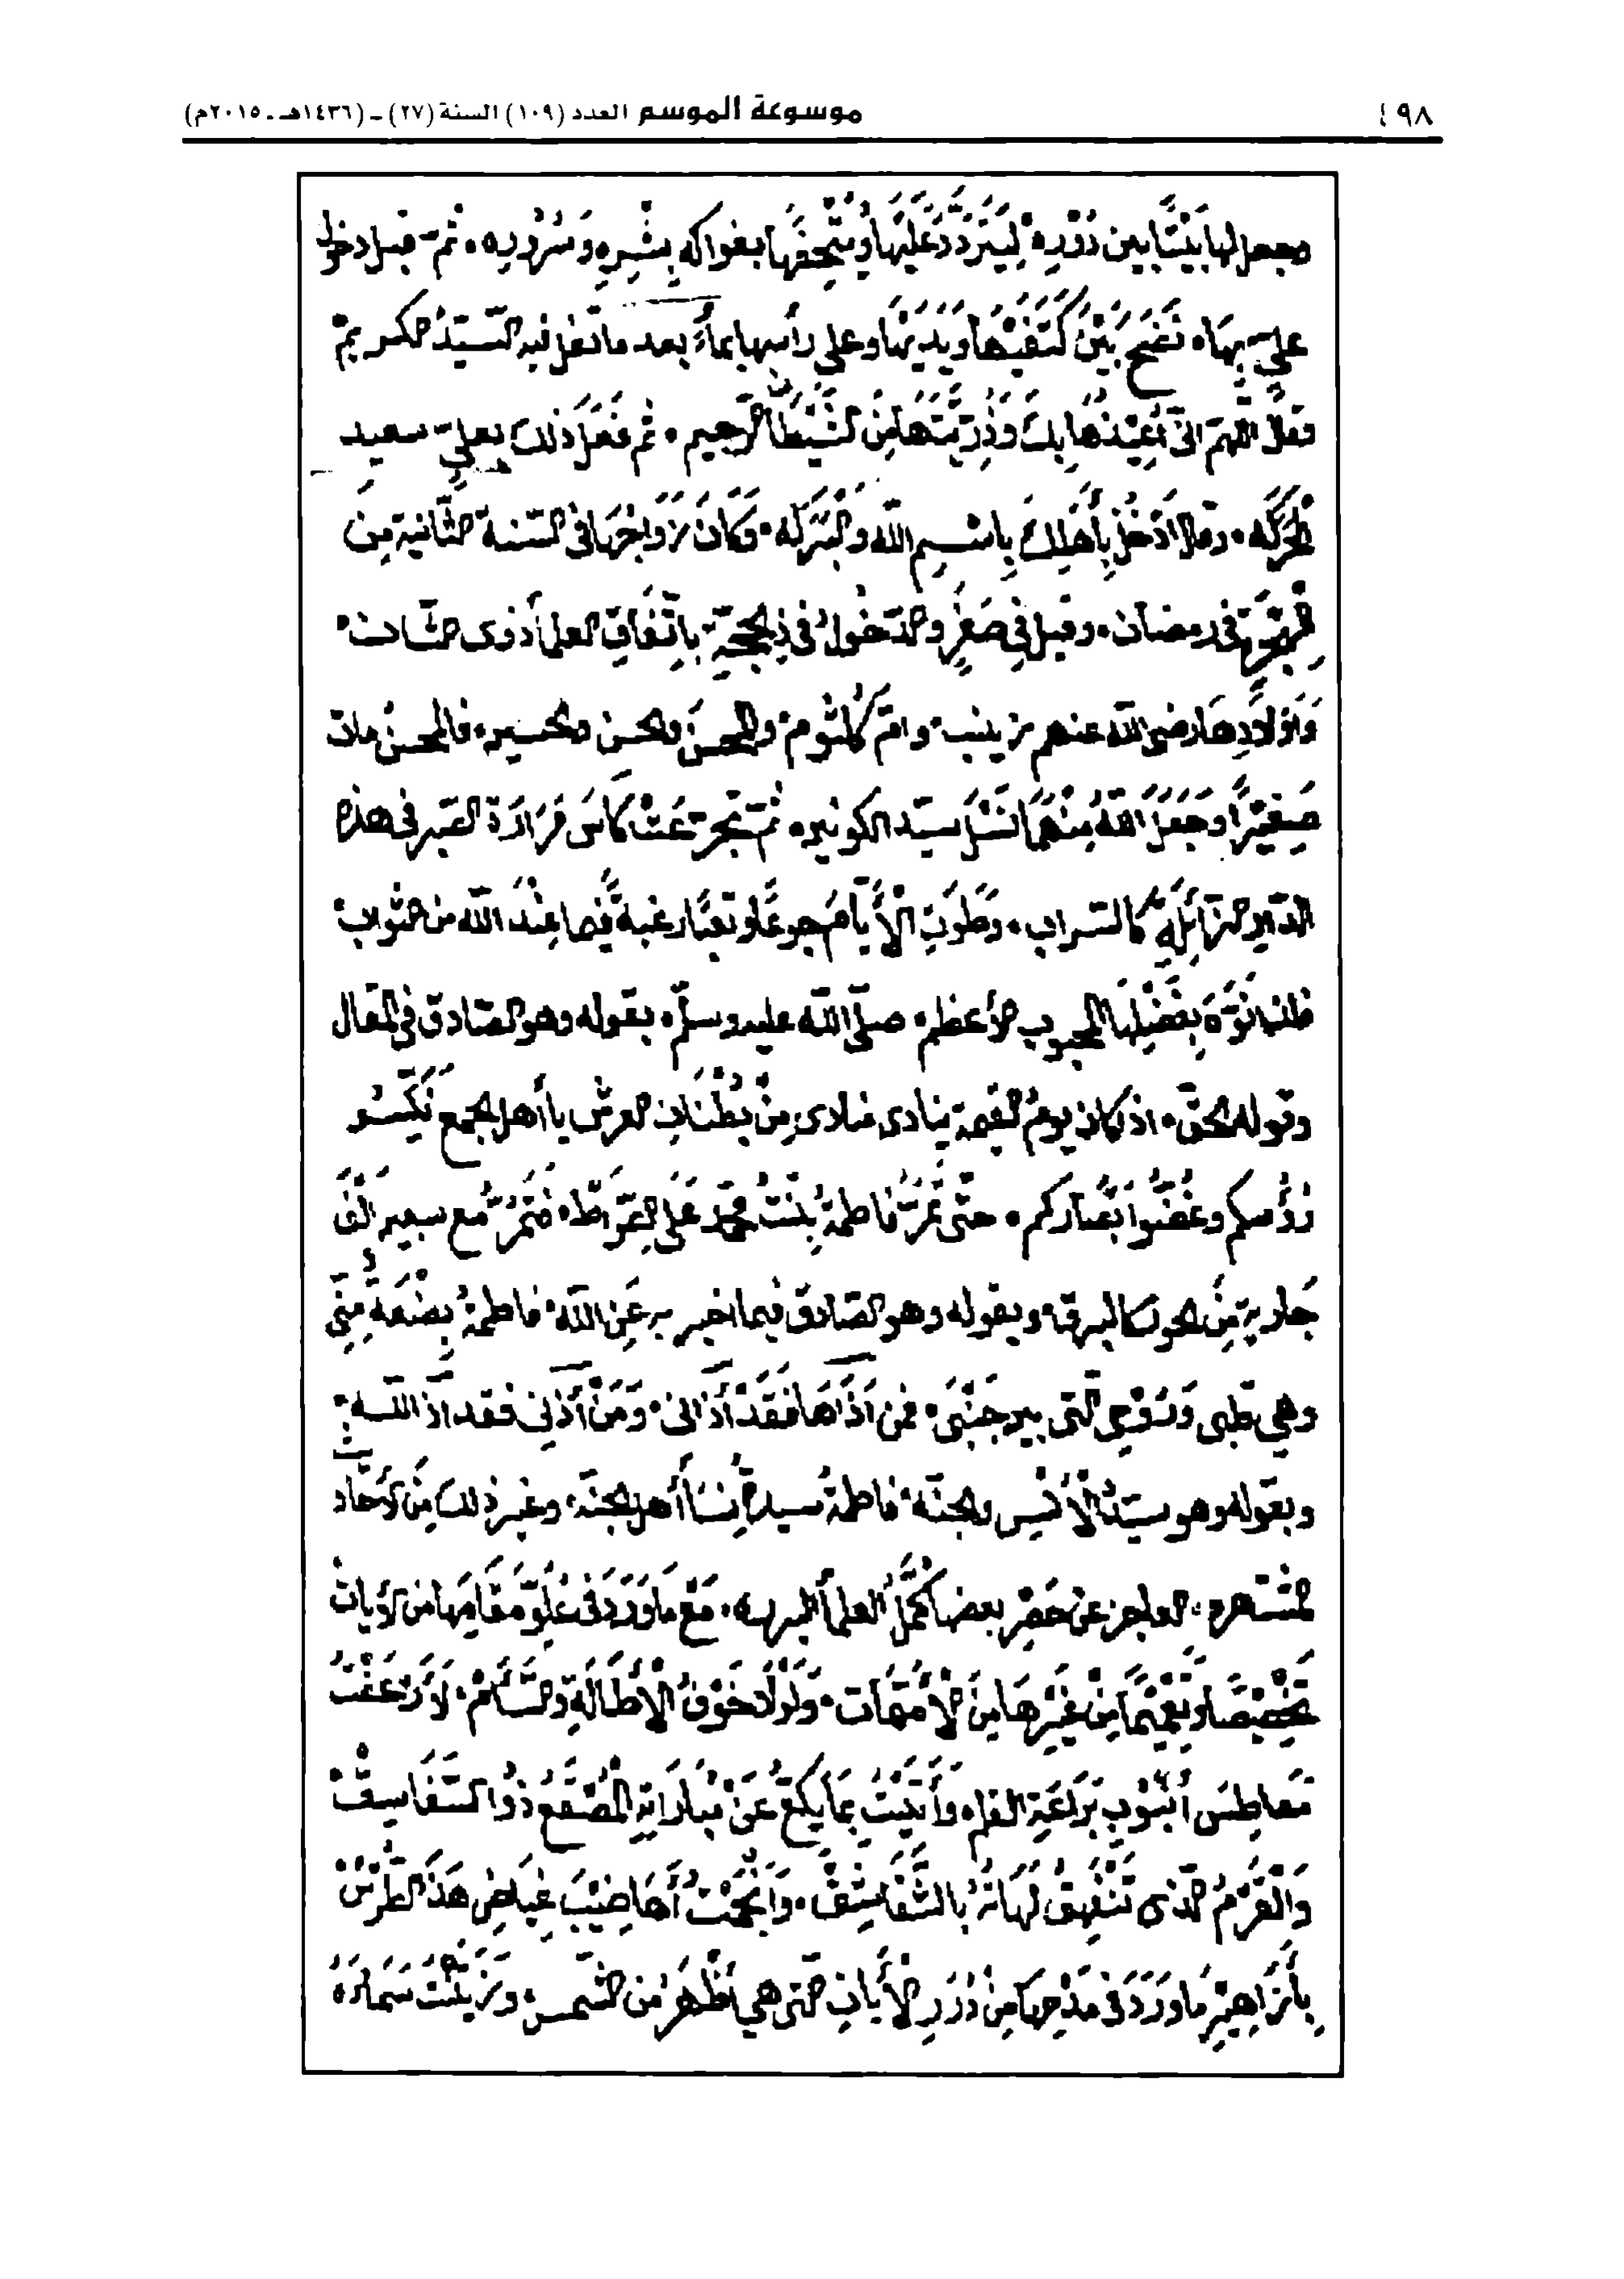 ٤٩٨
موسوعة الموسم العدد (١٠٩) السنة (٢٧) - (١٤٣٦هـ - ٢٠١٥م)
وجعل لها بَيْتًا بين دُوْرِهِ لِيَتَرَدَّدَ عَلَيْهَا وَيُتْحِفَهَا بفواكه بِشْرِهِ وَسُرُوْرِهِ، ثُمَّ قبل دخول
عليّ بِهَا، نَضَحَ بَيْنَ كَتَفَيْهَا وَيَدَيْهَا وعلى رأسها بماءٍ بعد ما تفل فيه السّيّدُ الكريم
فقال اللهمّ انّى أُعِيْذُهَا بِكَ وَذُرِّيَّتَهَا مِنَ الشَّيْطَانِ الرجيم، ثم فَعَلَ ذلك بعليّ سعيد
الحَرَكَه، وقال ادْخُلْ بِأَهْلِكَ بِاسْمِ اللهِ وَالبَرَكَه، وَكَانَ تَزَوِيْجُهَا فى السّنة الثّانية مِنَ
الْهِجْرَةِ فى رمضان، وقيل فِي صَفَرٍ والدّخُولُ فى ذِي الحِجَّةِ بِاتِّفَاقِ العلمأ ذوى الثّبات،
وَأَوْلَادِهَا رضى الله عنهم زينب، وامّ كُلثُوم، والمحسنُ والحسن والحسين، فالمحسنُ مات
صَغِيْرًا وَجَعَلَ اللهُ مِنْهُمَا نَسْلَ سيّد الكونين، ثمّ تَجرّعَتْ كَأسَ مَرَارَةِ الصّبر فى هذه
الدّارِ الزّائِلَةِ كالسّراب، وَطَوَتِ الْأَيّامَ جوعًا وتعبًا رغبةً فيما عِنْدَ الله من الثواب،
فلذا نَوَّهَ بِفَضْلِهَا المحبوب الأعظم، صلّى الله عليه وسلّم، بقوله وهو الصّادق فى المقال
وقوله الحقّ، اذ كان يومُ القيمة ينادى منادى مِنْ بُطْنَانِ العرش يا أهل الجمع نَكّسُو
رُؤُسكم وغُضُّوا أَبْصَاركم، حتّى تَمُرّ فاطمةُ بِنْتُ مُحمّد عَلَى الصّرَاط، فَتَمُرُّ مع سبعين أَلْفَ
جَاريةٍ مِنَ الحور كالبرق، وبقوله وهو الصّادق فيما اخبر به عَنِ الله، فاطمةُ بِضْعَةٌ مِنِّى
وهي قلبى وَرُوْحِى الّتى بين جَنْبَيَّ، فمن آذَاهَا فَقَدْ أَذَانى، وَمَنْ أَذَانِى فقد آذَ اللهَ،
وبقوله وهو سيّدُ الْأُنْسِ والجنّة، فاطمةُ سيدةُ نِسَأ أَهلِ الجنّة، وغير ذلك مِنَ الأَحاديث
المشتهره، العاجز عن حَصْرِ بعضها كُمَّلُ العلمأ المبرره، مَعَ مَا وَرَدَ فى عُلُوِّ مَقَامِهَا من الآيات
تَخْصِيْصًا وتَعْمِيْمًا مِنْ غَيْرِهَا مِنَ الْأُمّهَات، وَلَوْلَا خَوْفُ الْإِطَالَةِ والسَّأَمْ، لَأَرْعَفْتُ
مَعَاطِسَ أُنبُوْبِ بَرَاعَةِ القلم، وَأَتَيْتُ بِمَا يَكِعُّ عَنْ مُبَارَاتِهِ الْمُصْقَعُ ذُو
وَالْقَرْمُ الّذى تَنْفَهِقُ لَهَاتُهُ بِالشَّقَاشِقْ، أَهَاضِيْبَ غِيَاضِ هَذَا الطِّرْسْ
بِأَزَاهِيْرِ مَا وَرَدَ فى مَدْحِهَا مِنْ دُرَرِ الْأَيَاتِ الّتى هي أَظْهَرُ من الشّمس، وَزَيَّنْتُ سَمَاءَهُ